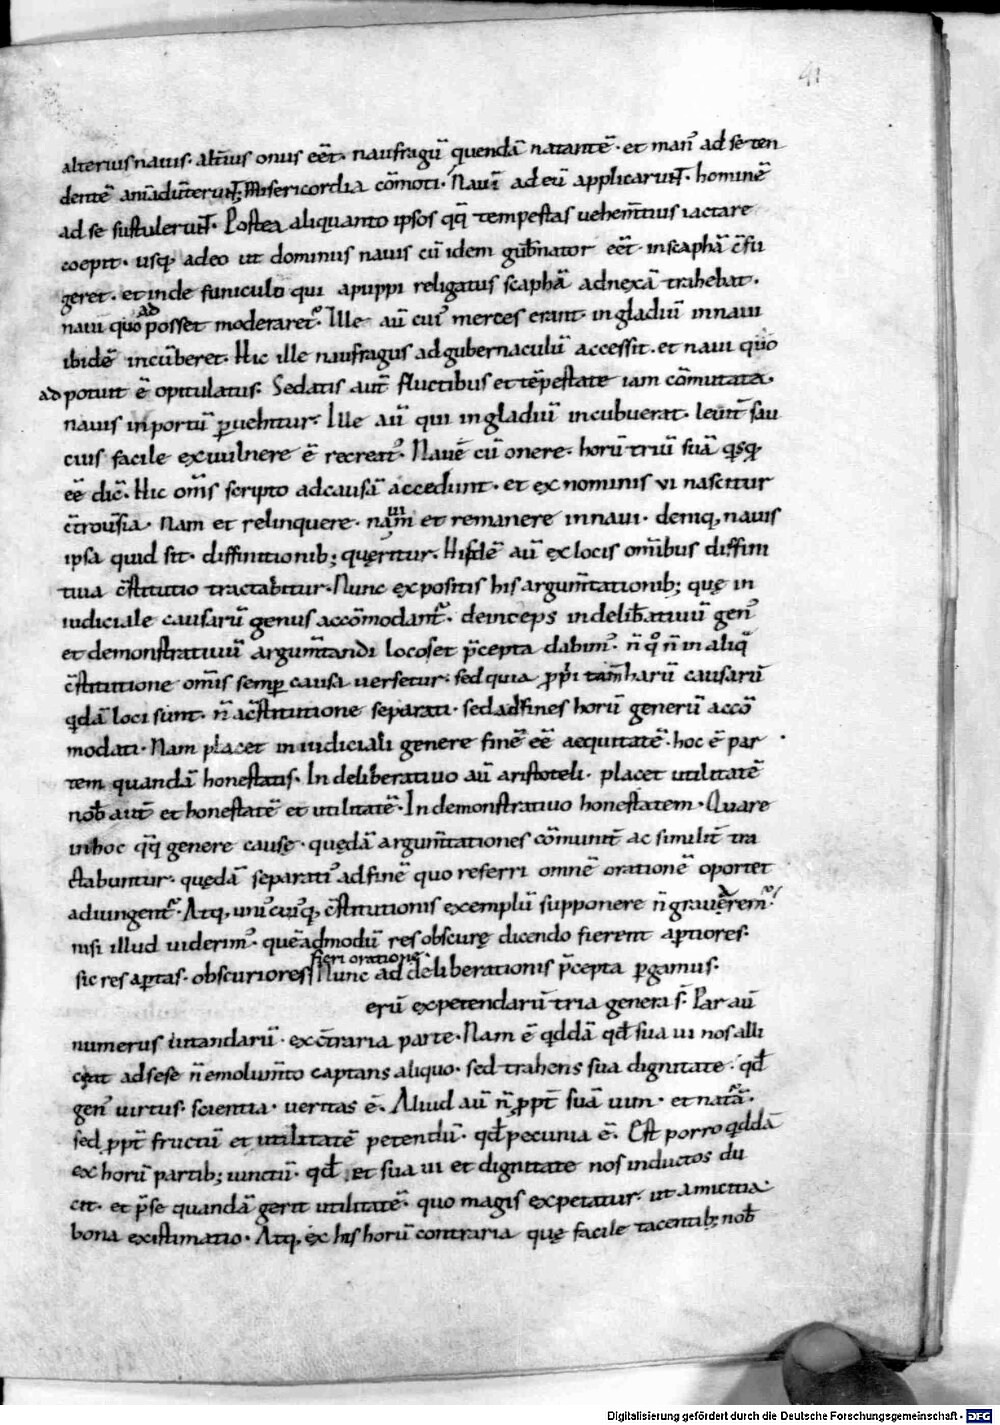 41
alterius nauis. alt͂ius onus eēt. naufragū quendā natantē. et man᷒ ad se ten
dentē aniāduerterunt. Misericordia cōmoti. Nauī ad eū applicarunt. hominē
ad se sustulerunt. Postea aliquanto ipsos qq̄ tempestas uehem̄tius iactare
coepit. usq; adeo ut dominus nauis cū idem gub̄nator eēt. in scaphā c̄fu
geret. et inde funiculo qui a puppi religatus scaphā adnexā trahebat.
naui quo ad posset moderaret᷒. Ille aū cui᷒ merces erant. in gladiū in naui
ibidē incūberet. Hic ille naufragus ad gubernaculū accessit. et naui quo
ad potuit ē opitulatus. Sedatis aut̄ fluctibus et tēpestate iam cōmutata.
nauis in portū puehitur. Ille aū qui in gladiū incubuerat. leuit̄ sau
cius facile ex uulnere ē recreat᷒. Nauē cū onere. horū triū suā qsq;
eē dic̄. Hic om̄s scripto ad causā accedunt. et ex nominis ui nascitur
c̄trou̅sia. Nam et relinquere. nauim et remanere in naui. deniq, nauis
ipsa quid sit. diffinitionib; quęritur. Hisdē aū ex locis om̄ibus diffini
tiua c̄stitutio tractabitur. Nunc expositis his argum̄tationib; quę in
iudiciale causarū genus accōmodant᷒. deinceps in delib̄atiuū gen᷒
et demonstratiuū argum̄tandi locos et p̄cepta dabim᷒. n̄ qͦ n̄ in aliq̄
c̄stitutione om̄is semp causa uersetur. sed quia pp̄i tam̄ harū causarū
qdā loci sunt. n̄ a c̄stitutione separati. sed ad fines horū generū accō
modati. Nam placet in iudiciali genere finē eē aequitatē. hoc ē par
tem quandā honestatis. In deliberatiuo aū aristoteli. placet utilitatē
nob̄ aut̄ et honestatē et utilitatē. In demonstratiuo honestatem. Quare
in hoc qq̄ genere causę. quędā argum̄tationes cōmunit̄ ac similit̄ tra
ctabuntur. quędā separati᷒ ad finē quo referri omnē orationē oportet
adiungent᷒. Atq, uni᷒cui᷒q, c̄stitutionis exemplū supponere n̄ grauarem᷒
nisi illud uiderim᷒. queādmodū res obscurę dicendo fierent aptiores.
sic res aptas. obscuriores fieri oratione. Nunc ad deliberationis p̄cepta pgamus.
erū expetendarū tria genera s̄. Par aū
numerus uitandarū. ex c̄traria parte. Nam ē qddā qd̄ sua ui nos alli
ceat ad sese n̄ emolum̄to captans aliquo. sed trahens sua dignitate. qd̄
gen᷒ uirtus. scientia. ueritas ē. Aliud aū n̄ ppt̄ suā uim. et natā.
sed ppt̄ fructū et utilitatē petendū. qd̄ pecunia ē. Est porro qddā
ex horū partib; iunctū. qd̄ et sua ui et dignitate nos inductos du
cit. et p̄ se quandā gerit utilitatē. quo magis expetatur. ut amicitia.
bona existimatio. Atq, ex his horū contraria quę facile tacentib; nob̄
Digitalisierung gefördert durch die Deutsche Forschungsgemeinschaft - DFG